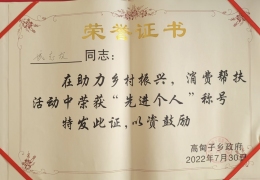 荣誉证书
同志：
在助力乡村振兴，消费帮扶
活动中荣获“先进个人”称号
特发此证，以资鼓励
高甸子乡政府
2022年7月30日